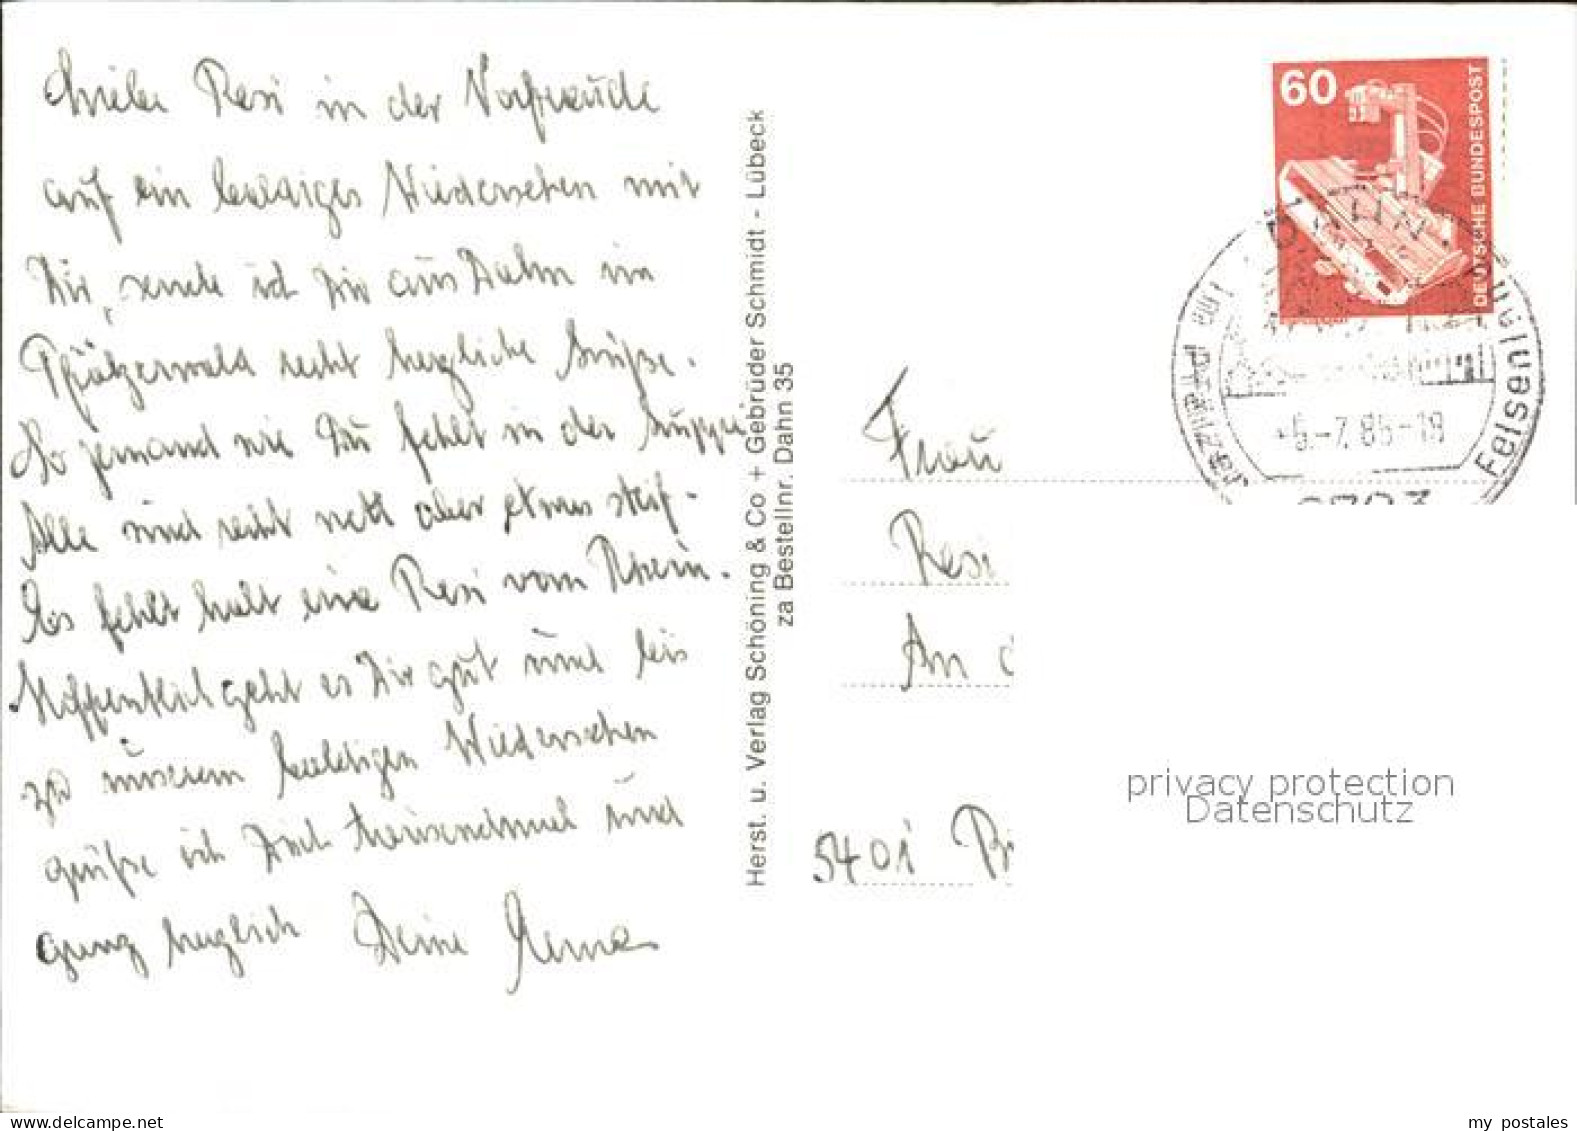 Liebe Resi in der Vorfreude
auf ein baldiges Wiedersehen mit
Dir, sende ich Dir aus Dahn im
Pfälzerwald recht herzliche Grüße.
So jemand wie Du fehlt in der Gruppe.
Alle sind recht nett aber etwas steif.
Es fehlt halt eine Resi vom Rhein.
Hoffentlich geht es Dir gut und bis
zu unserem baldigen Wiedersehen
grüße ich Dich tausendmal und
ganz herzlich Deine Erna
Herst. u. Verlag Schöning & Co + Gebrüder Schmidt - Lübeck
za Bestellnr. Dahn 35
60
DEUTSCHE BUNDESPOST
DAHN
Felsen
-5.-7.85-18
Frau
Resi
An d
5401
privacy protection
Datenschutz
www.delcampe.net
my_postales